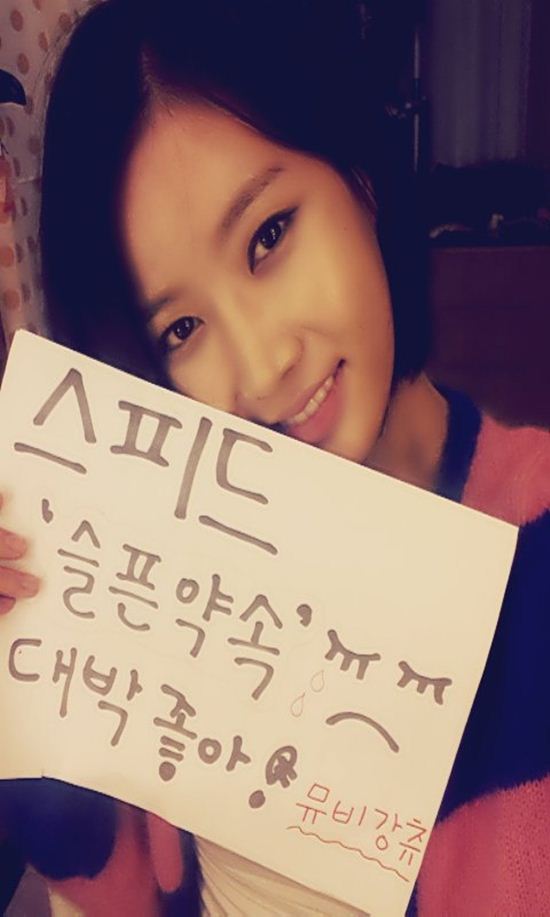 스피드
'슬픈약속'
대박 좋아!
뮤비강츄